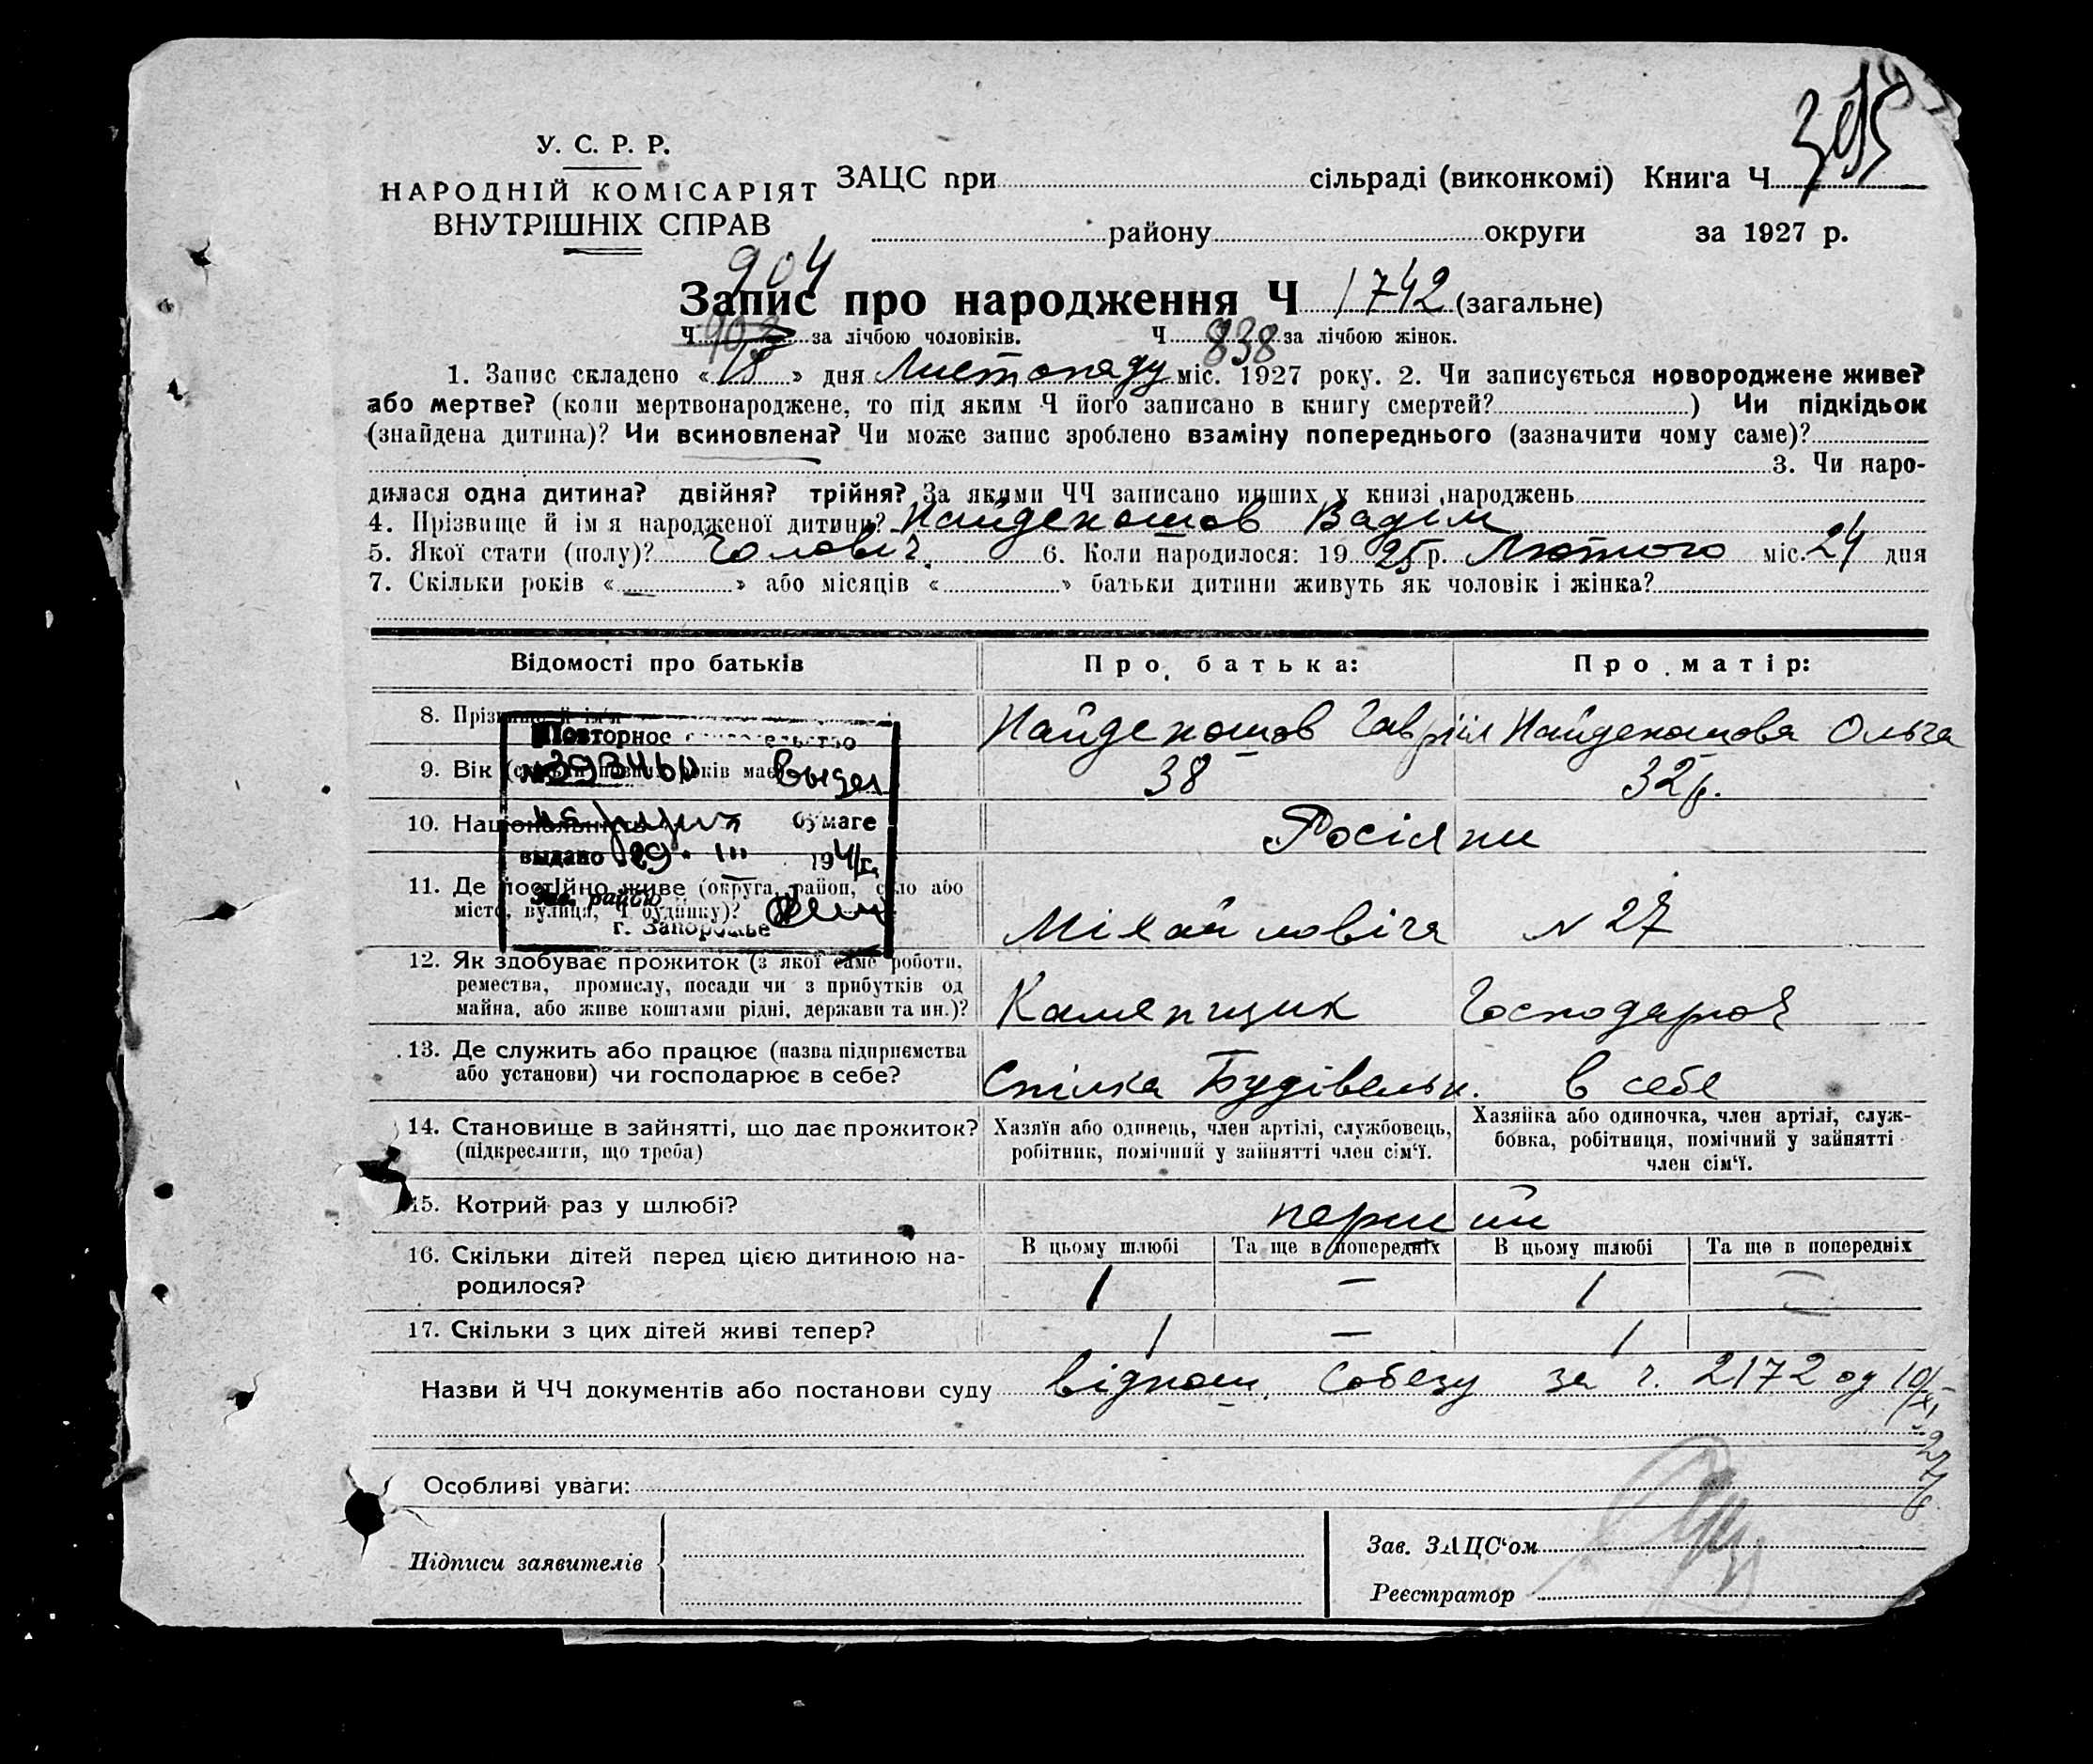 У. С. Р. Р.
НАРОДНІЙ КОМІСАРІЯТ
ВНУТРІШНІХ СПРАВ
ЗАЦС при сільраді (виконкомі) Книга Ч
району округи за 1927 р.
904
Запис про народження Ч 1742 (загальне)
Ч 903 за лічбою чоловіків. Ч 838 за лічбою жінок.
1. Запис складено «18» дня Листопаду міс. 1927 року. 2. Чи записується новороджене живе?
або мертве? (коли мертвонароджене, то під яким Ч його записано в книгу смертей? ) Чи підкідьок
(знайдена дитина)? Чи всиновлена? Чи може запис зроблено взаміну попереднього (зазначити чому саме)?
3. Чи наро-
дилася одна дитина? двійня? трійня? За якими ЧЧ записано инших у книзі народжень
4. Прізвище й ім я народженої дитини? Найденошов Вадім
5. Якої стати (полу)? Чоловіч. 6. Коли народилося: 1925 р. Лютого міс. 24 дня
7. Скільки років « » або місяців « » батьки дитини живуть як чоловік і жінка?
Відомості про батьків Про батька: Про матір:
8. Прізвище й ім'я Найденошов Гавріїл Найденошова Ольга
9. Вік 38 32 р.
10. Національність Росіяни
11. Де постійно живе (округа, район, село або
місто, вулиця, Ч будинку)? Міхайловіча N 27
Повторное свидетельство
выдан
бумаге
выдано 29. III 1941 г.
г. Запорожье
12. Як здобуває прожиток (з якої саме роботи,
ремества, промислу, посади чи з прибутків од
майна, або живе коштами рідні, держави та ин.)? Каменщик Господарює
13. Де служить або працює (назва підприємства
або установи) чи господарює в себе? Спілка Будівельн. в себе
14. Становище в зайнятті, що дає прожиток?
(підкреслити, що треба)
Хазяїн або одинець, член артілі, службовець,
робітник, помічний у зайнятті член сім'ї.
Хазяїйка або одиночка, член артілі, служ-
бовка, робітниця, помічний у зайнятті
член сім'ї.
15. Котрий раз у шлюбі? перший
16. Скільки дітей перед цією дитиною на-
родилося?
В цьому шлюбі Та ще в попередніх В цьому шлюбі Та ще в попередніх
1 — 1 —
17. Скільки з цих дітей живі тепер? 1 — 1
Назви й ЧЧ документів або постанови суду віднош. Собезу за ч. 2172 од 10/XI
27 р.
Особливі уваги:
Підписи заявителів
Зав. ЗАЦС'ом
Реєстратор